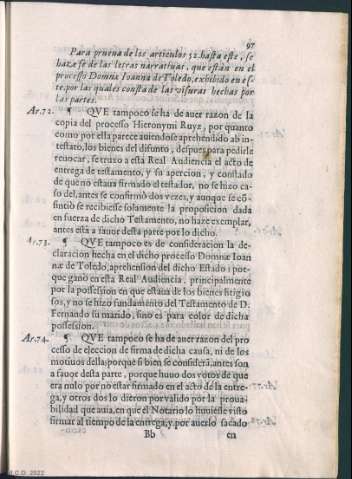 97
Para prueua de los articulos 52. hasta este, se
haze fè de las letras narratiuas, que están en el
processo Domnæ Ioannæ de Toledo, exhibido en es-
te, por las quales consta de las visuras hechas por
las partes.
Ar.72. ¶ QVE tampoco se ha de auer razon de la
copia del processo Hieronymi Ruyz, por quanto
como por ella parece auiendose aprehendido ab in-
testato, los bienes del difunto, despues para pedirle
reuocar, se truxo a esta Real Audiencia el acto de
entrega de testamento, y su apercion, y constado
de que no estaua firmado el testador, no se hizo ca-
so del, antes se confirmò dos vezes, y aunque se cõ-
sintiò se recibiesse solamente la proposicion dada
en fuerza de dicho Testamento, no haze exemplar,
antes està a fauor desta parte por lo dicho.
Ar.73. ¶ QVE tampoco es de consideracion la de-
claracion hecha en el dicho processo Domnæ Ioan
næ de Toledo, aprehension del dicho Estado: por-
que ganò en esta Real Audiencia, principalmente
por la possession en que estaua de los bienes litigio
sos, y no se hizo fundamento del Testamento de D.
Fernando su marido, sino es para color de dicha
possession.
Ar.74. ¶ QVE tampoco se ha de auer razon del pro
cesso de eleccion de firma de dicha causa, ni de los
motiuos della; porque si bien se considera, antes son
a fauor desta parte, porque huuo dos votos de que
era nulo por no estar firmado en el acto de la entre-
ga, y otros dos lo dieron por valido por la proua-
bilidad que auia, en que el Notario lo huuiesse visto
firmar al tiempo de la entrega, y por auerlo sacado
Bb en